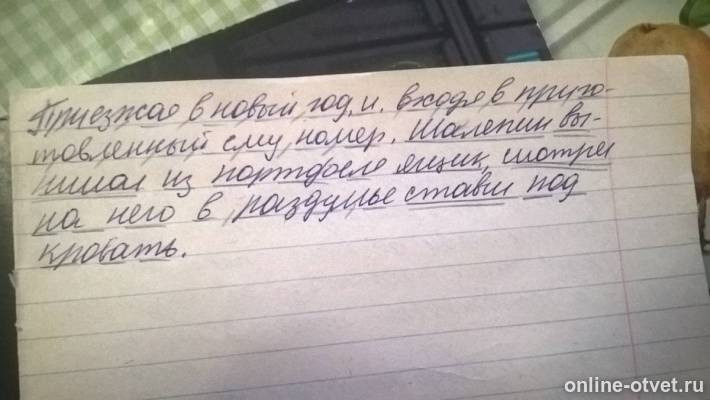 Приезжая в новый год, и. входя в приго-
товленный ему номер. Шаляпин вы-
нимал из портфеля ящик, смотрел
на него в раздумье ставил под
кровать.
online-otvet.ru